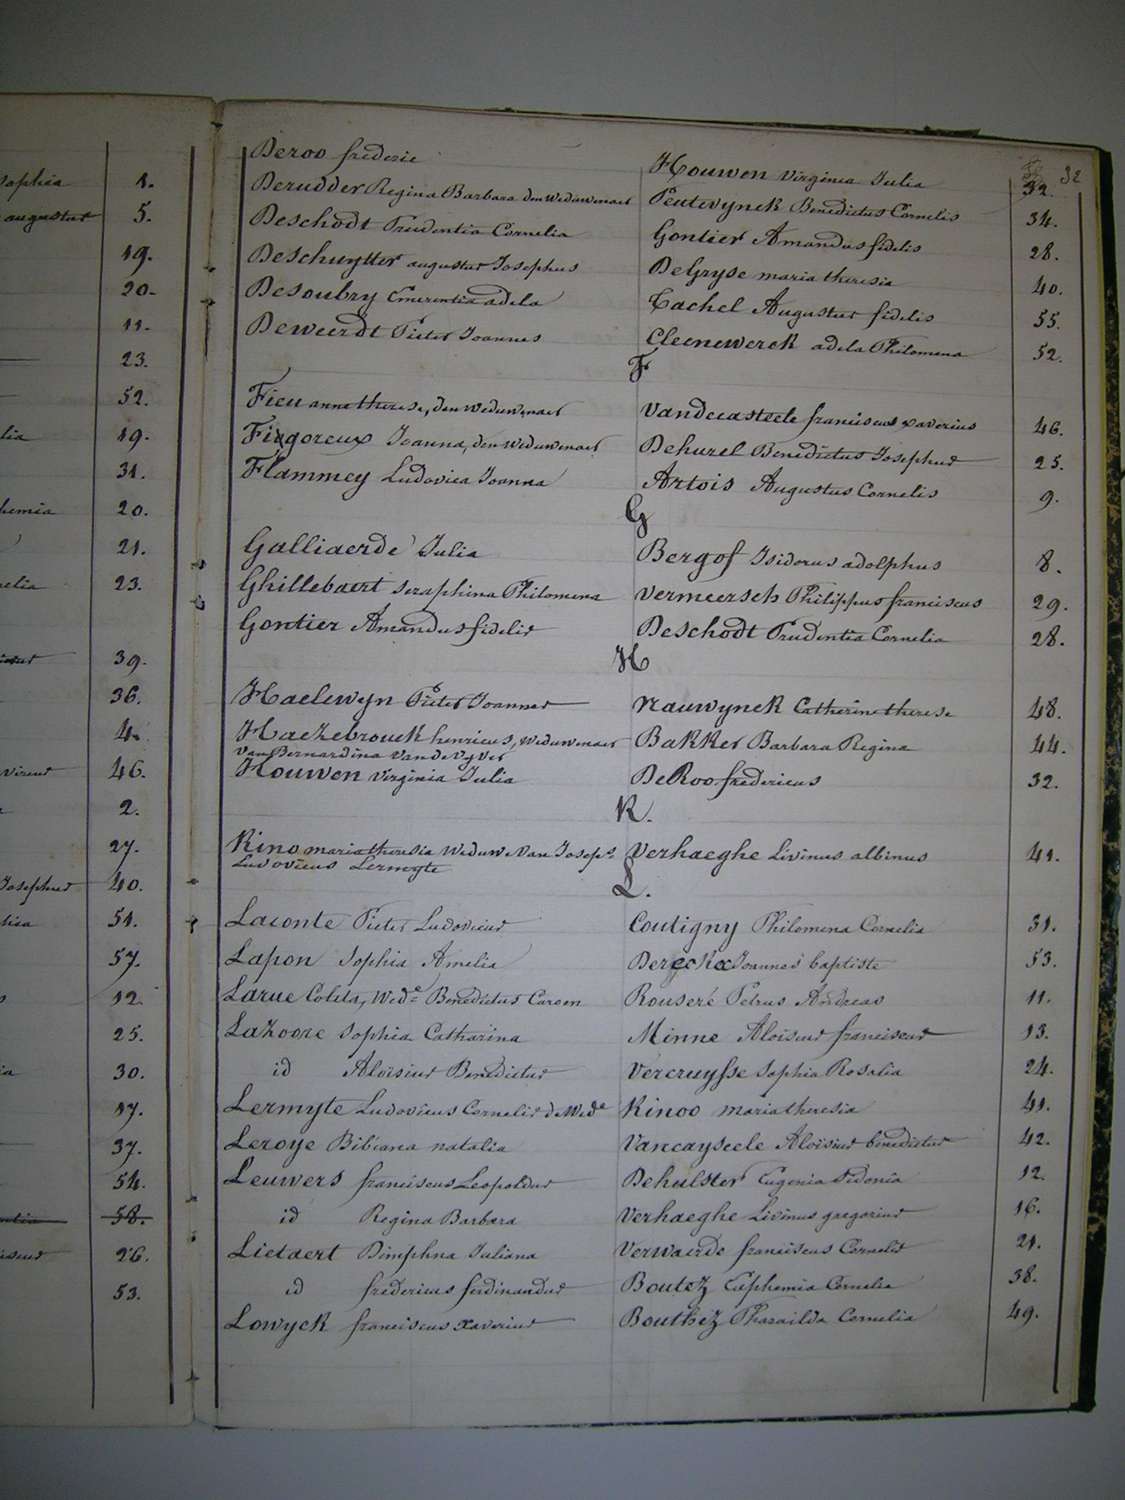 Sophia 1.
augustus 5.
19.
20.
11.
23.
52.
lia 19.
31.
hemia 20.
21.
elia 23.
39.
36.
4.
46.
2.
27.
Josephus 40.
51.
57.
12.
25.
30.
17.
37.
54.
58.
26.
53.
32
Deroo frederic Houwen Virginia Julia 32.
Derudder Regina Barbara den Weduwenaer Peutevynck Benedictus Cornelis 34.
Deschodt Prudentia Cornelia Gontier Amandus fidelis 28.
Deschuytter augustus Josephus DeGryse maria theresia 40.
Desoubry Emerentia adela Cachel Augustus fidelis 55.
Deweerdt Pieter Joannes Cleenewerck adela Philomena 52.
F
Fieu anna therese, den Weduwenaer Vandecasteele franciscus xaverius 46.
Figoreux Joanna, den Weduwenaer Dehurel Benedictus Josephus 25.
Flammey Ludovica Joanna Artois Augustus Cornelis 9.
G
Galliaerde Julia Bergof Isidorus adolphus 8.
Ghillebaert Seraphina Philomena Vermeersch Philippus franciscus 29.
Gontier Amandus fidelis Deschodt Prudentia Cornelia 28.
H
Haelewyn Pieter Joannes Nauwynck Catherine therese 48.
Haezebrouck henricus, Weduwenaer Bakker Barbara Regina 44.
van Bernardina VandeVyver
Houwen Virginia Julia DeRoo fredericus 32.
K.
Kino maria theresia Weduwe Van Joseps Verhaeghe Livinus albinus 41.
Ludovicus Lermyte
L.
Laconte Pieter Ludovicus Coutigny Philomena Cornelia 31.
Lapon Sophia Amelia Joannes baptiste 53.
Larue Coleta, Wede Benedictus Caroen Rouseré Petrus Andreas 11.
Lazoore Sophia Catharina Minne Aloisius franciscus 13.
id Aloisius Benedictus Vercruysse Sophia Rosalia 24.
Lermyte Ludovicus Cornelis d. Wede Kinoo maria theresia 41.
Leroye Bibiana natalia Vancayseele Aloïsius benedictus 42.
Leuwers franciscus Leopoldus Dehulster Eugenia Sidonia 12.
id Regina Barbara Verhaeghe Livinus gregorius 16.
Lietaert Dimphna Juliana Verwaerde franciscus Cornelis 21.
id fredericus ferdinandus Boutez Euphemia Cornelia 38.
Lowyck franciscus xaverius Bouthez Pharaïlda Cornelia 49.